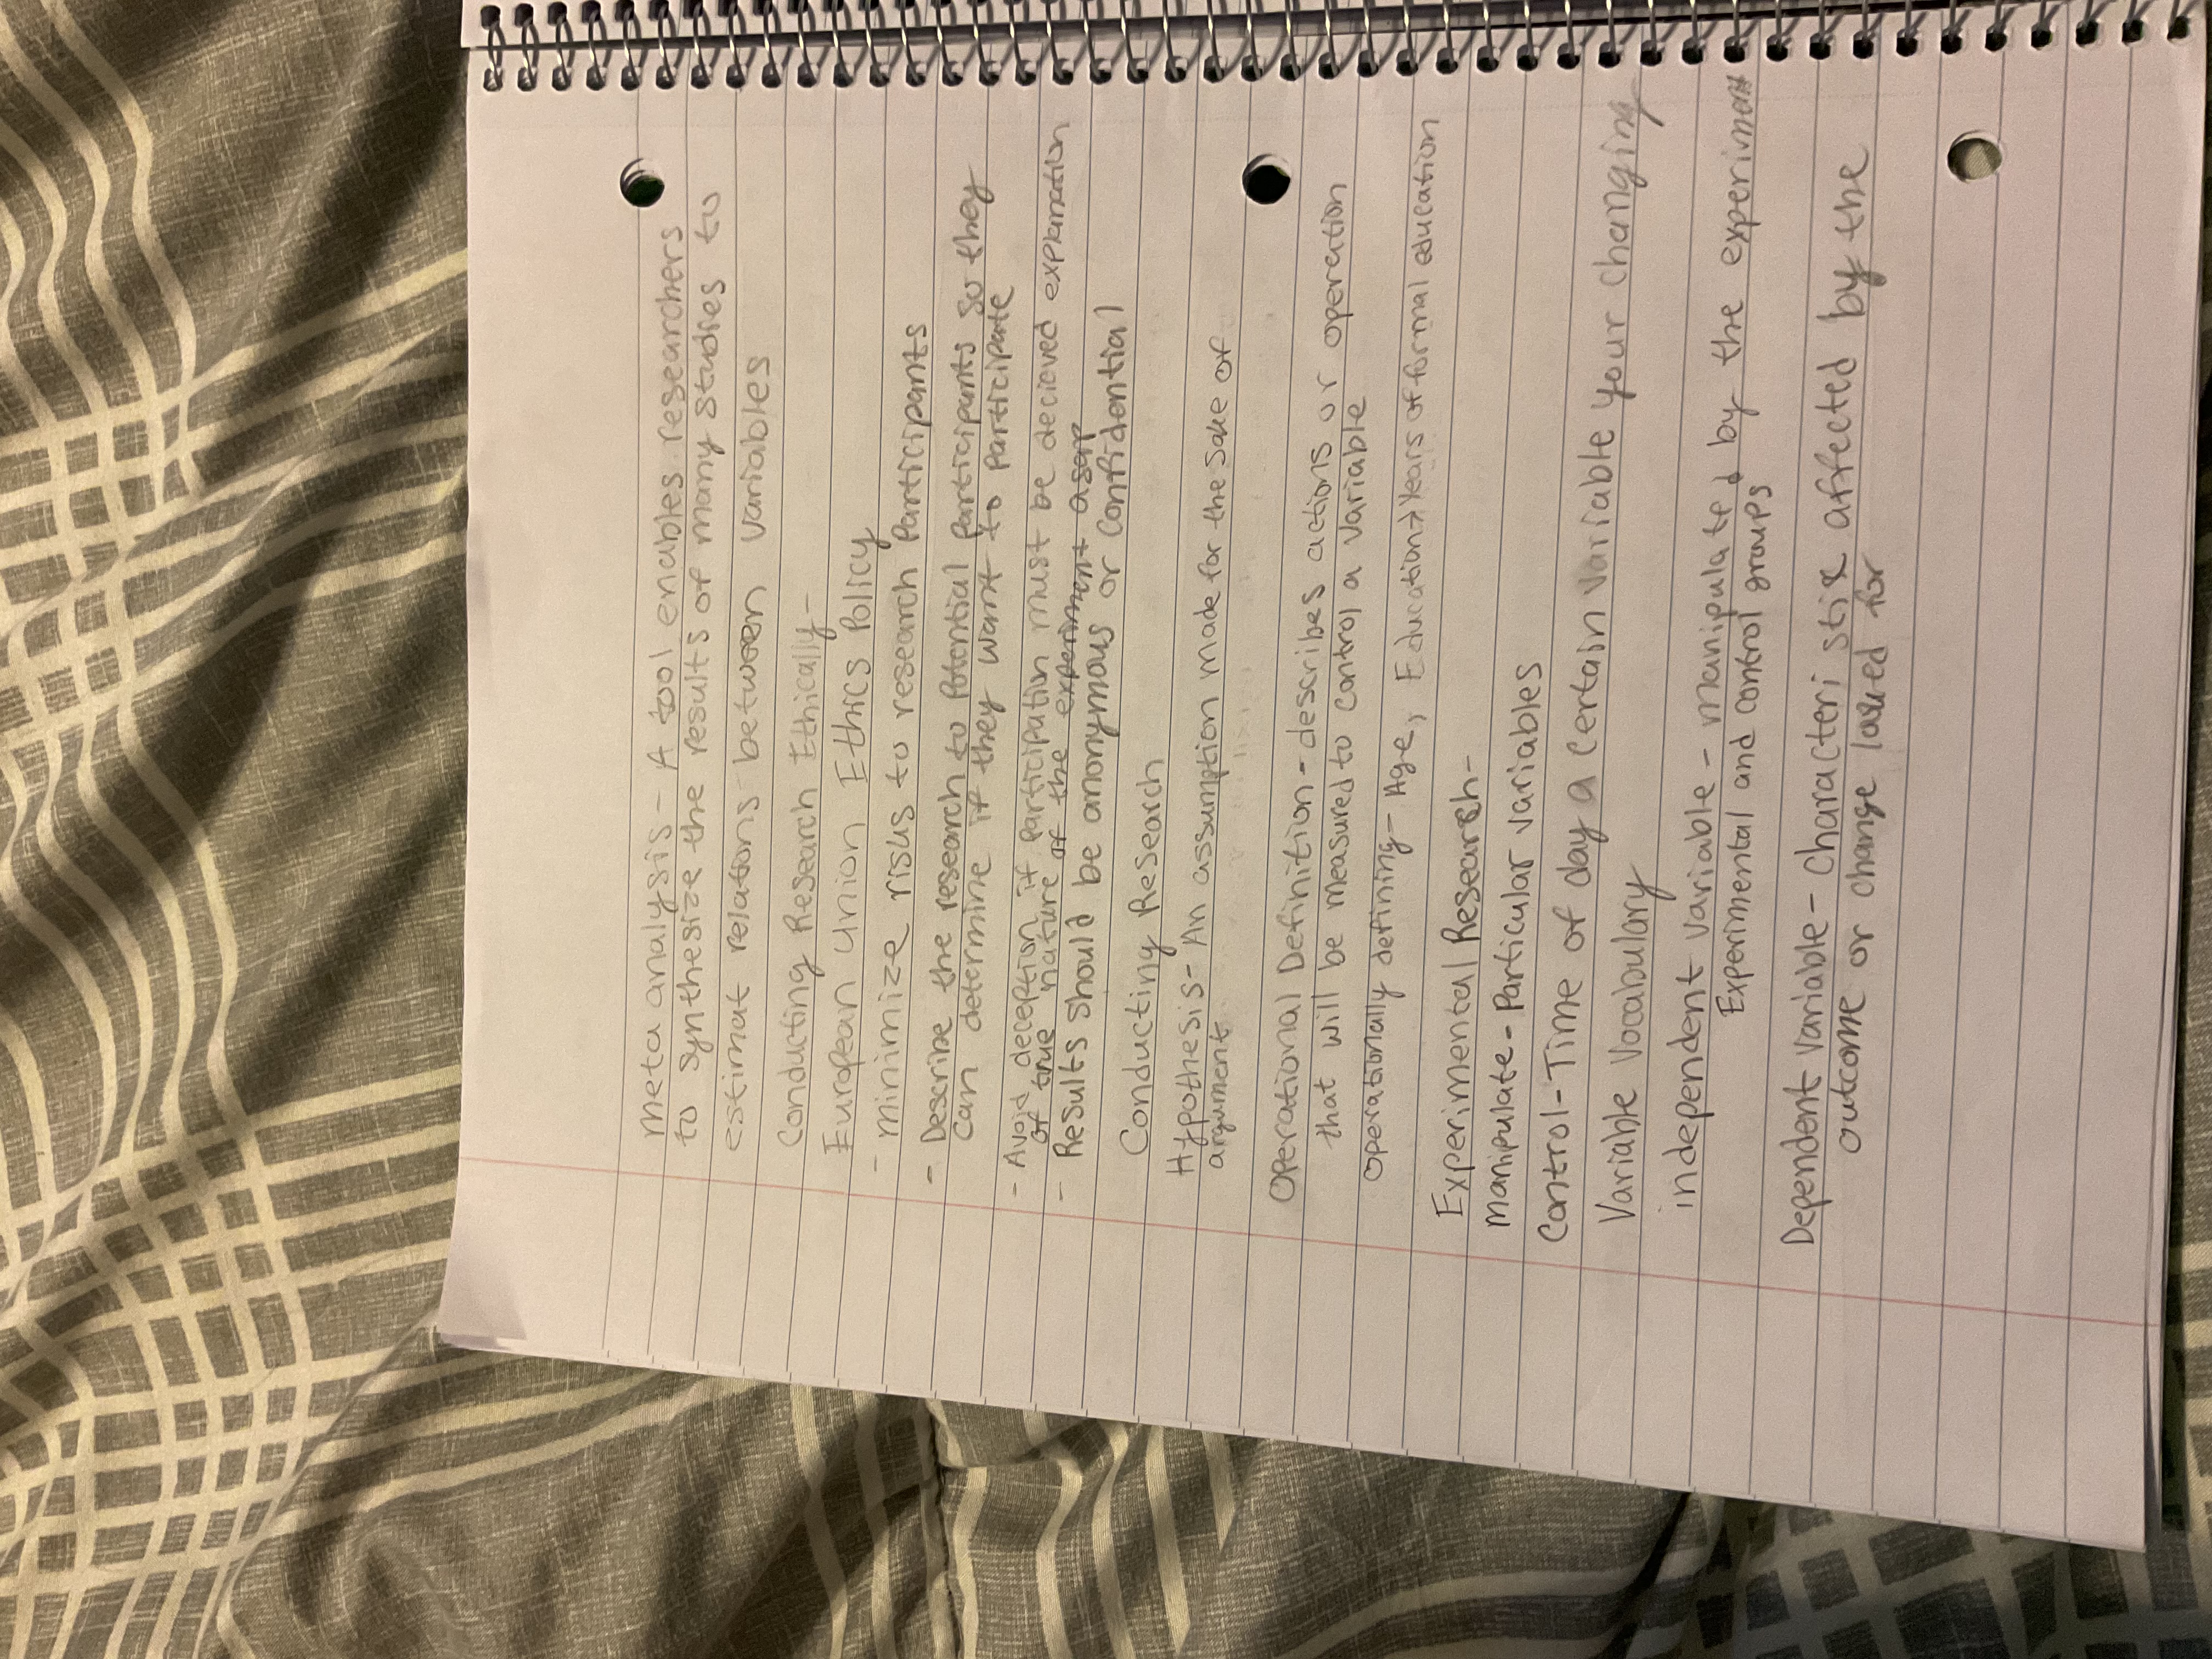 meta analysis - A tool enables researchers
to synthesize the results of many studies to
estimat relations between variables
Conducting Research Ethically-
European Union Ethics Policy
- minimize risks to research Participants
- Describe the research to Potential Participants so they
can determine if they want to participate
- Avoid deception if participation must be decieved explanation
of true nature of the experiment asap
- Results should be anonymous or Confidential
Conducting Research
Hypothesis- An assumption made for the sake of
argument
Operational Definition - describes actions or operation
that will be measured to control a variable
operationally defining- Age, Education→Years of formal education
Experimental Research-
manipulate - Particular variables
Control-Time of day a certain variable your changing
Variable Vocabulary
independent variable - manipulated by the experiment
Experimental and control groups
Dependent variable - Characteristix affected by the
outcome or change looked for